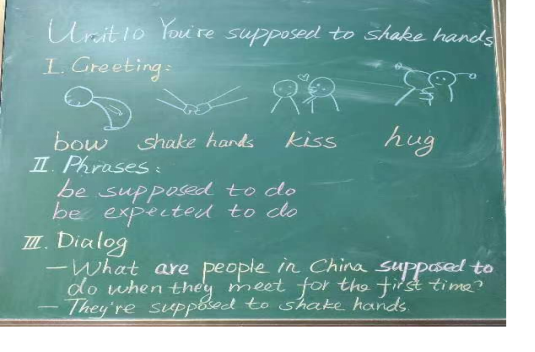 Unit 10 You're supposed to shake hands
I. Greeting:
bow shake hands kiss hug
II. Phrases:
be supposed to do
be expected to do
III. Dialog
—What are people in China supposed to
do when they meet for the first time?
—They're supposed to shake hands.